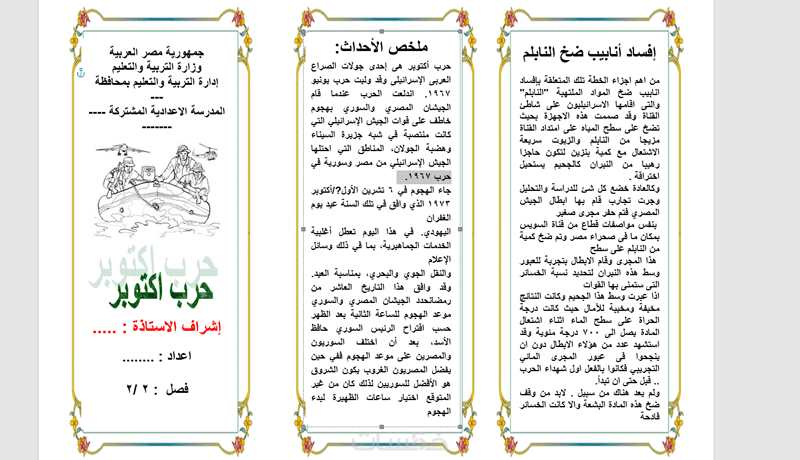 إفساد أنابيب ضخ النابلم
من اهم اجزاء الخطة تلك المتعلقة بإفساد
انابيب ضخ المواد الملتهبة "النابلم"
والتى اقامها الاسرائيليون على شاطئ
القناة وقد صممت هذه الاجهزة بحيث
تضخ على سطح المياه على امتداد القناة
مزيجا من النابلم والزيوت سريعة
الاشتعال مع كمية بنزين لتكون حاجزا
رهيبا من النيران كالجحيم يستحيل
اختراقة .
وكالعادة خضع كل شئ للدراسة والتحليل
وجرت تجارب قام بها ابطال الجيش
المصري فتم حفر مجرى صغير
بنفس مواصفات قطاع من قناة السويس
بمكان ما فى صحراء مصر وتم ضخ كمية
من النابلم على سطح
هذا المجرى وقام الابطال بتجربة للعبور
وسط هذه النيران لتحديد نسبة الخسائر
التى ستمنى بها القوات
اذا عبرت وسط هذا الجحيم وكانت النتائج
مخيفة ومخيبة للآمال حيث كانت درجة
الحراة على سطح الماء اثناء اشتعال
المادة يصل الى ٧٠٠ درجة مئوية وقد
استشهد عدد من هؤلاء الابطال دون ان
ينجحوا فى عبور المجرى المائي
التجريبي فكانوا بالفعل اول شهداء الحرب
.. قبل حتى ان تبدأ.
ولم يعد هناك من سبيل . لابد من وقف
ضخ هذه المادة البشعة والا كانت الخسائر
فادحة
ملخص الأحداث:
حرب أكتوبر هى إحدى جولات الصراع
العربى الإسرائيلى وقد وليت حرب يونيو
١٩٦٧. اندلعت الحرب عندما قام
الجيشان المصري والسوري بهجوم
خاطف على قوات الجيش الإسرائيلي التي
كانت منتصبة في شبه جزيرة السيناء
وهضبة الجولان، المناطق التي احتلها
الجيش الإسرائيلي من مصر وسورية في
حرب ١٩٦٧.
جاء الهجوم في ٦ تشرين الأول?/أكتوبر
١٩٧٣ الذي وافق في تلك السنة عيد يوم
الغفران
اليهودي. في هذا اليوم تعطل أغلبية
الخدمات الجماهيرية، بما في ذلك وسائل
الإعلام
والنقل الجوي والبحري، بمناسبة العيد.
وقد وافق هذا التاريخ العاشر من
رمضانحدد الجيشان المصري والسوري
موعد الهجوم للساعة الثانية بعد الظهر
حسب اقتراح الرئيس السوري حافظ
الأسد، بعد أن اختلف السوريون
والمصرين على موعد الهجوم ففي حين
يفضل المصريون الغروب يكون الشروق
هو الأفضل للسوريين لذلك كان من غير
المتوقع اختيار ساعات الظهيرة لبدء
الهجوم
جمهورية مصر العربية
وزارة التربية والتعليم
إدارة التربية والتعليم بمحافظة
---
المدرسة الاعدادية المشتركة ----
-------
حرب اكتوبر
إشراف الاستاذة : .....
اعداد : ........
فصل : ٢ /٢
خمسات